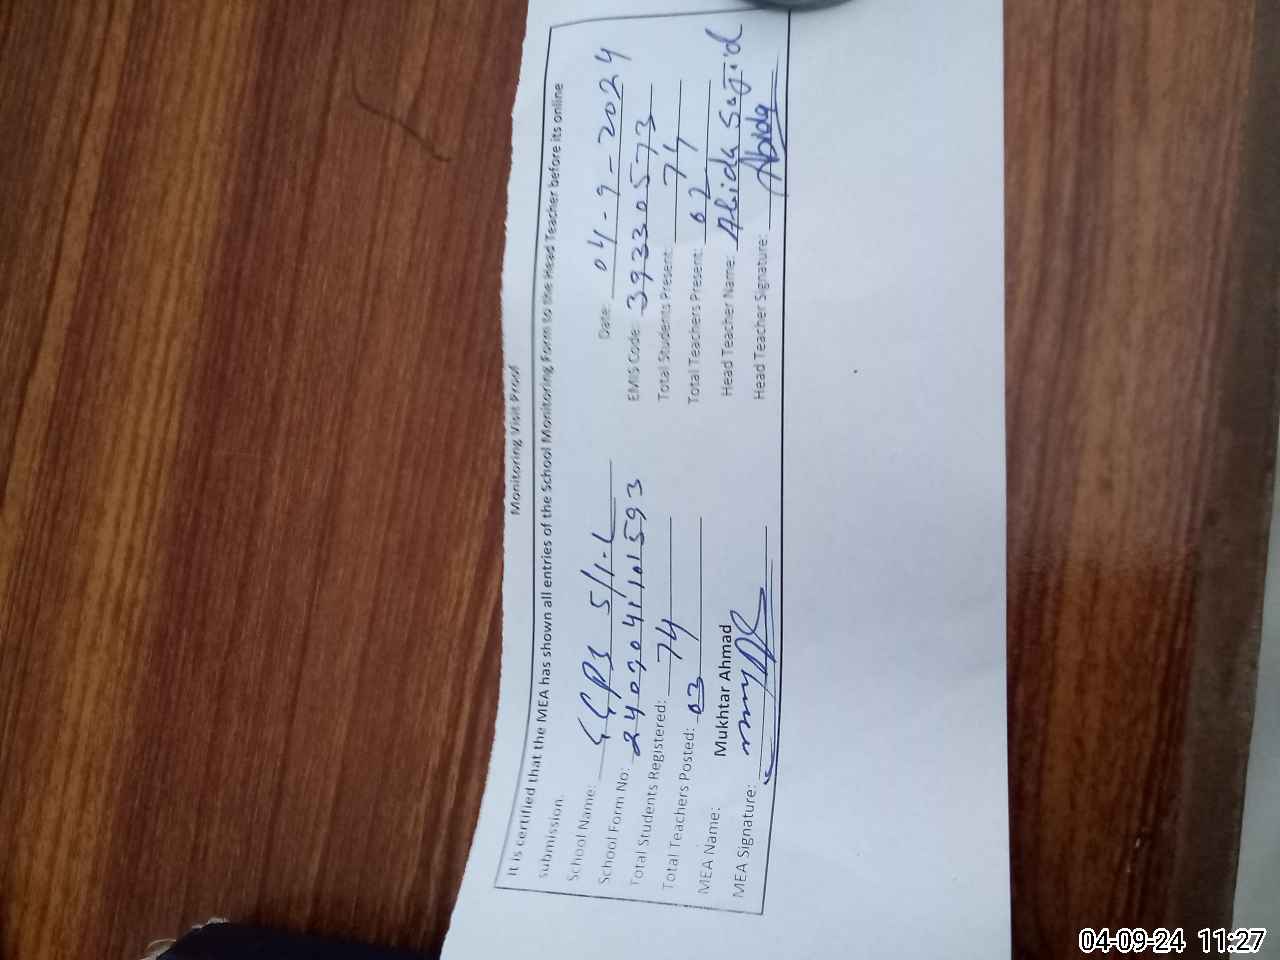 Monitoring Visit Proof
It is certified that the MEA has shown all entries of the School Monitoring Form to the Head Teacher before its online
submission.
School Name: GGPS 5/1-L Date: 04-9-2024
School Form No: 2409041101593 EMIS Code: 39330573
Total Students Registered: 74 Total Students Present: 74
Total Teachers Posted: 03 Total Teachers Present: 02
MEA Name: Mukhtar Ahmad Head Teacher Name: Abida Sajid
MEA Signature: Head Teacher Signature: Abida
04-09-24 11:27